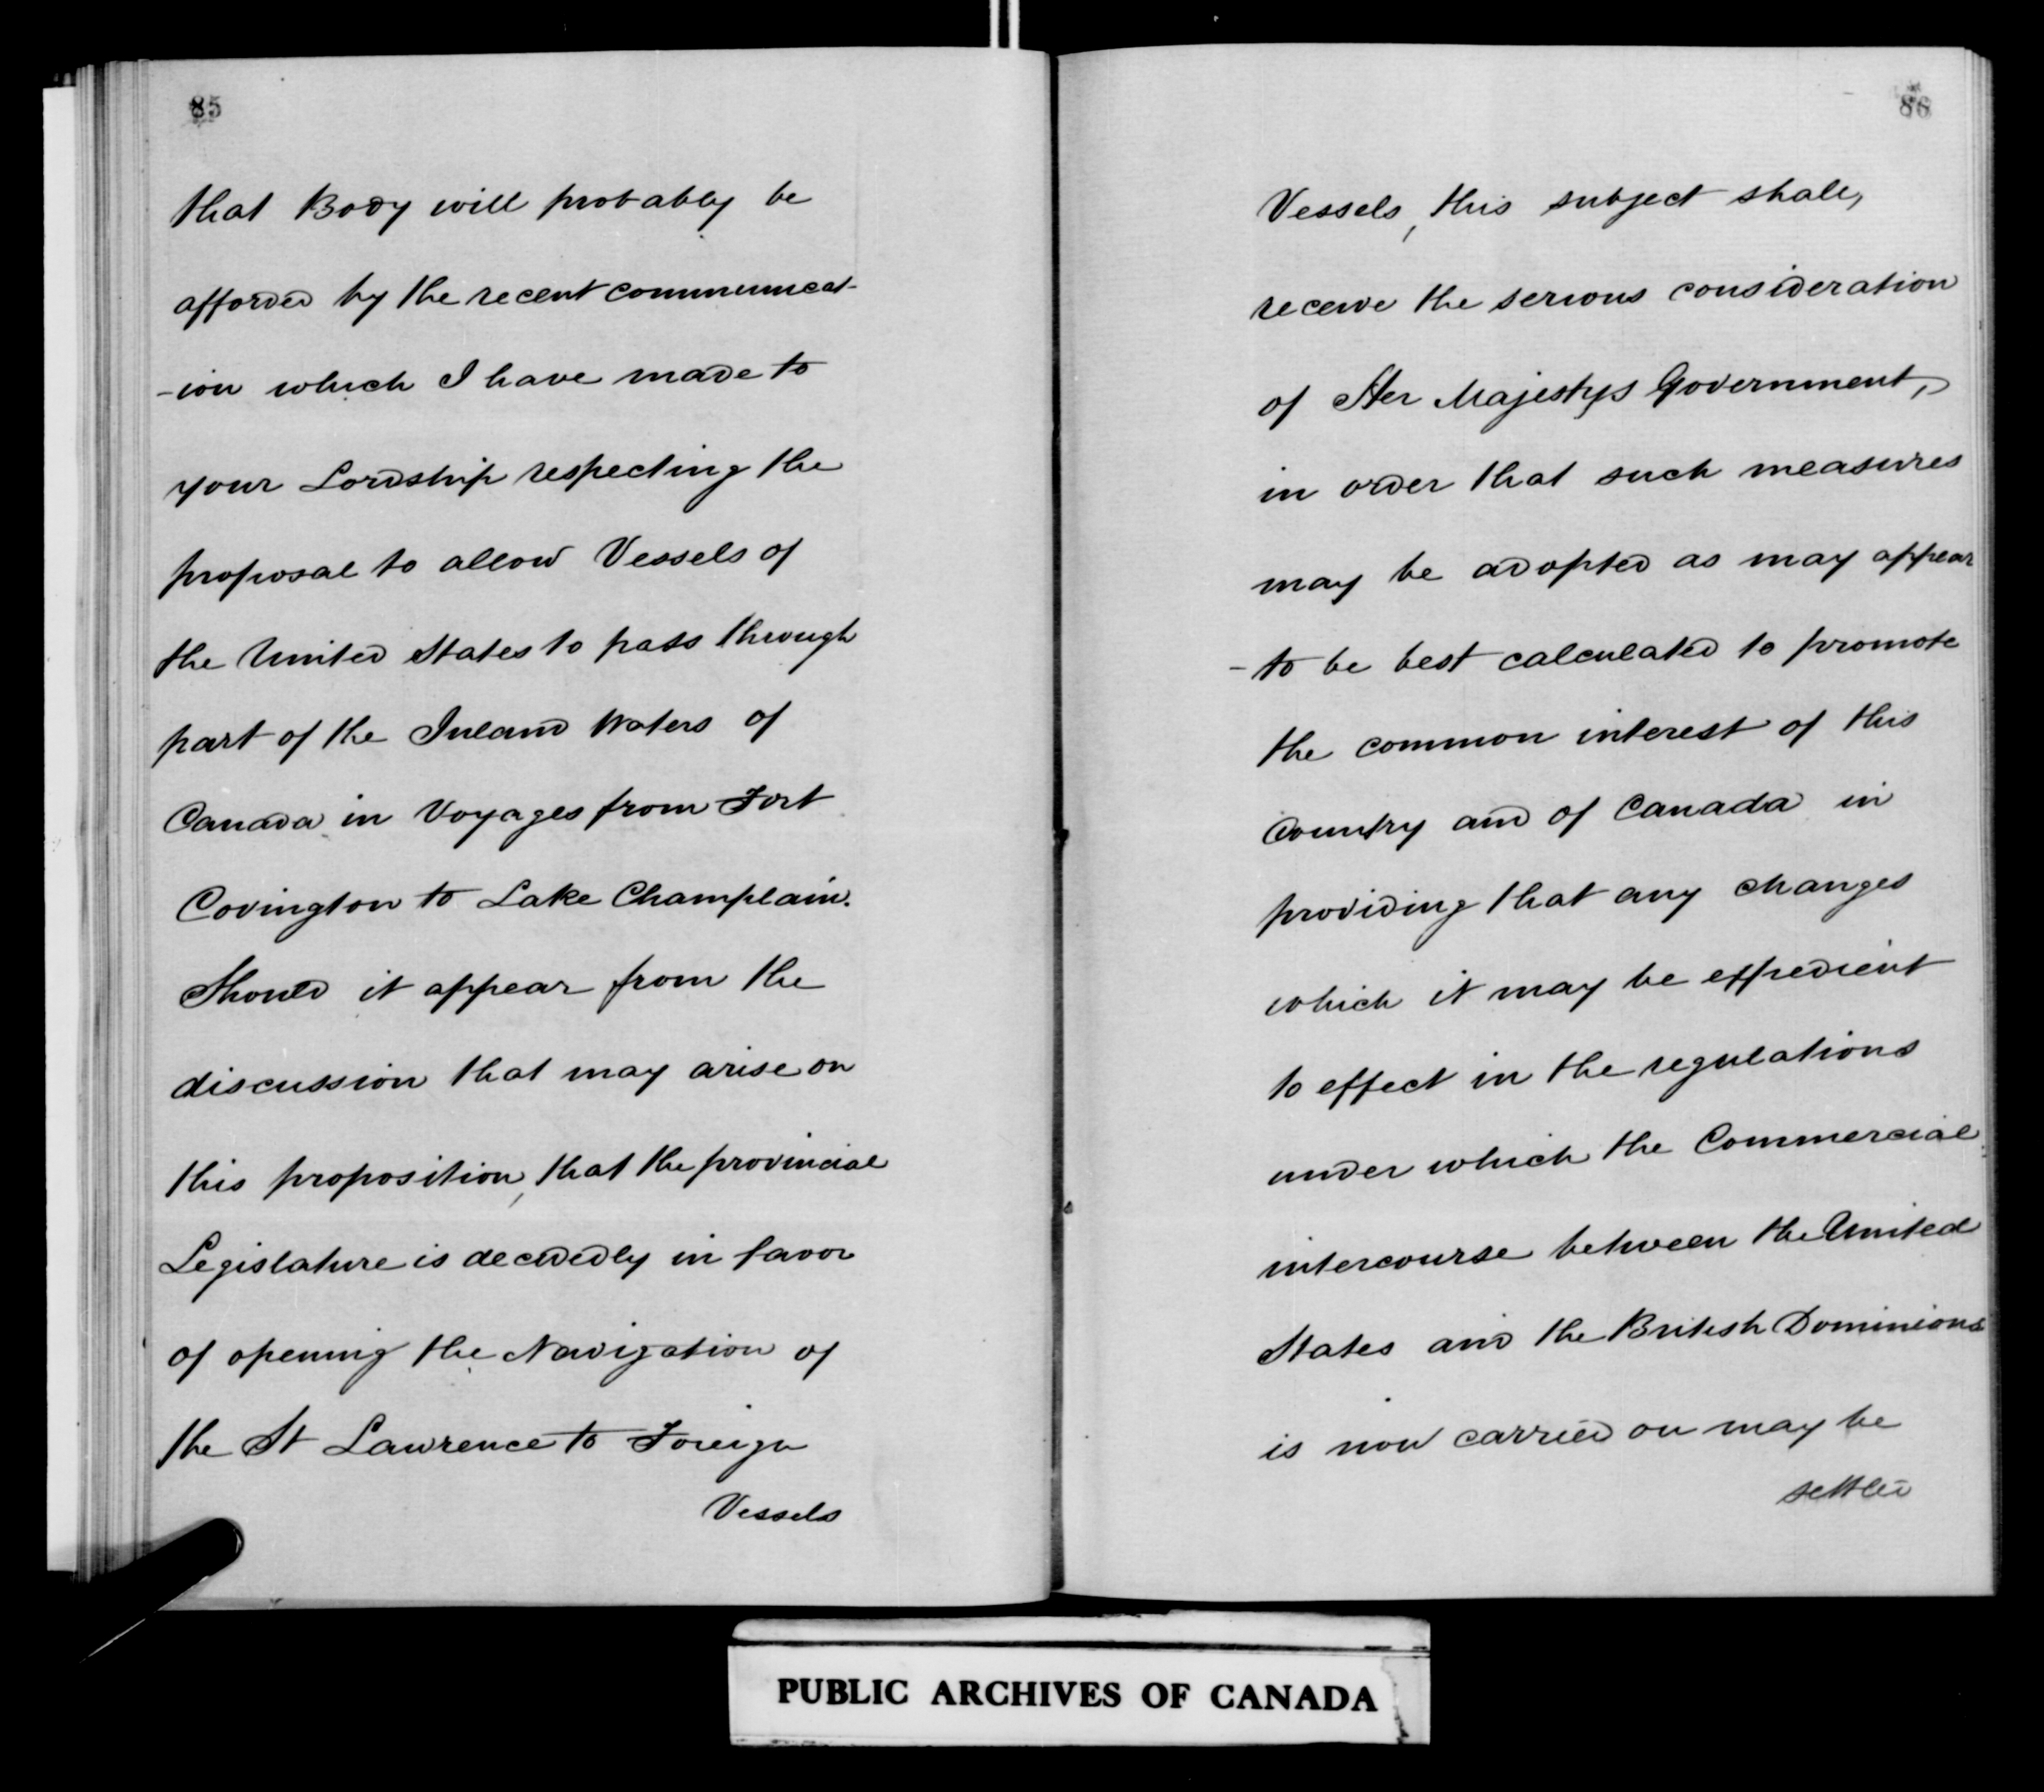 85
that Body will probably be
afforded by the recent communicat-
-ion which I have made to
your Lordship respecting the
proposal to allow Vessels of
the United States to pass through
part of the Inland Waters of
Canada in Voyages from Fort
Covington to Lake Champlain.
Should it appear from the
discussion that may arise on
this proposition, that the provincial
Legislature is decidedly in favor
of opening the Navigation of
the St Lawrence to Foreign
Vessels
86
Vessels, this subject shall,
receive the serious consideration
of Her Majestys Government,
in order that such measures
may be adopted as may appear
- to be best calculated to promote
the common interest of this
Country and of Canada in
providing that any changes
which it may be expedient
to effect in the regulations
under which the Commercial
intercourse between the United
States and the British Dominions
is now carried on may be
settled
PUBLIC ARCHIVES OF CANADA